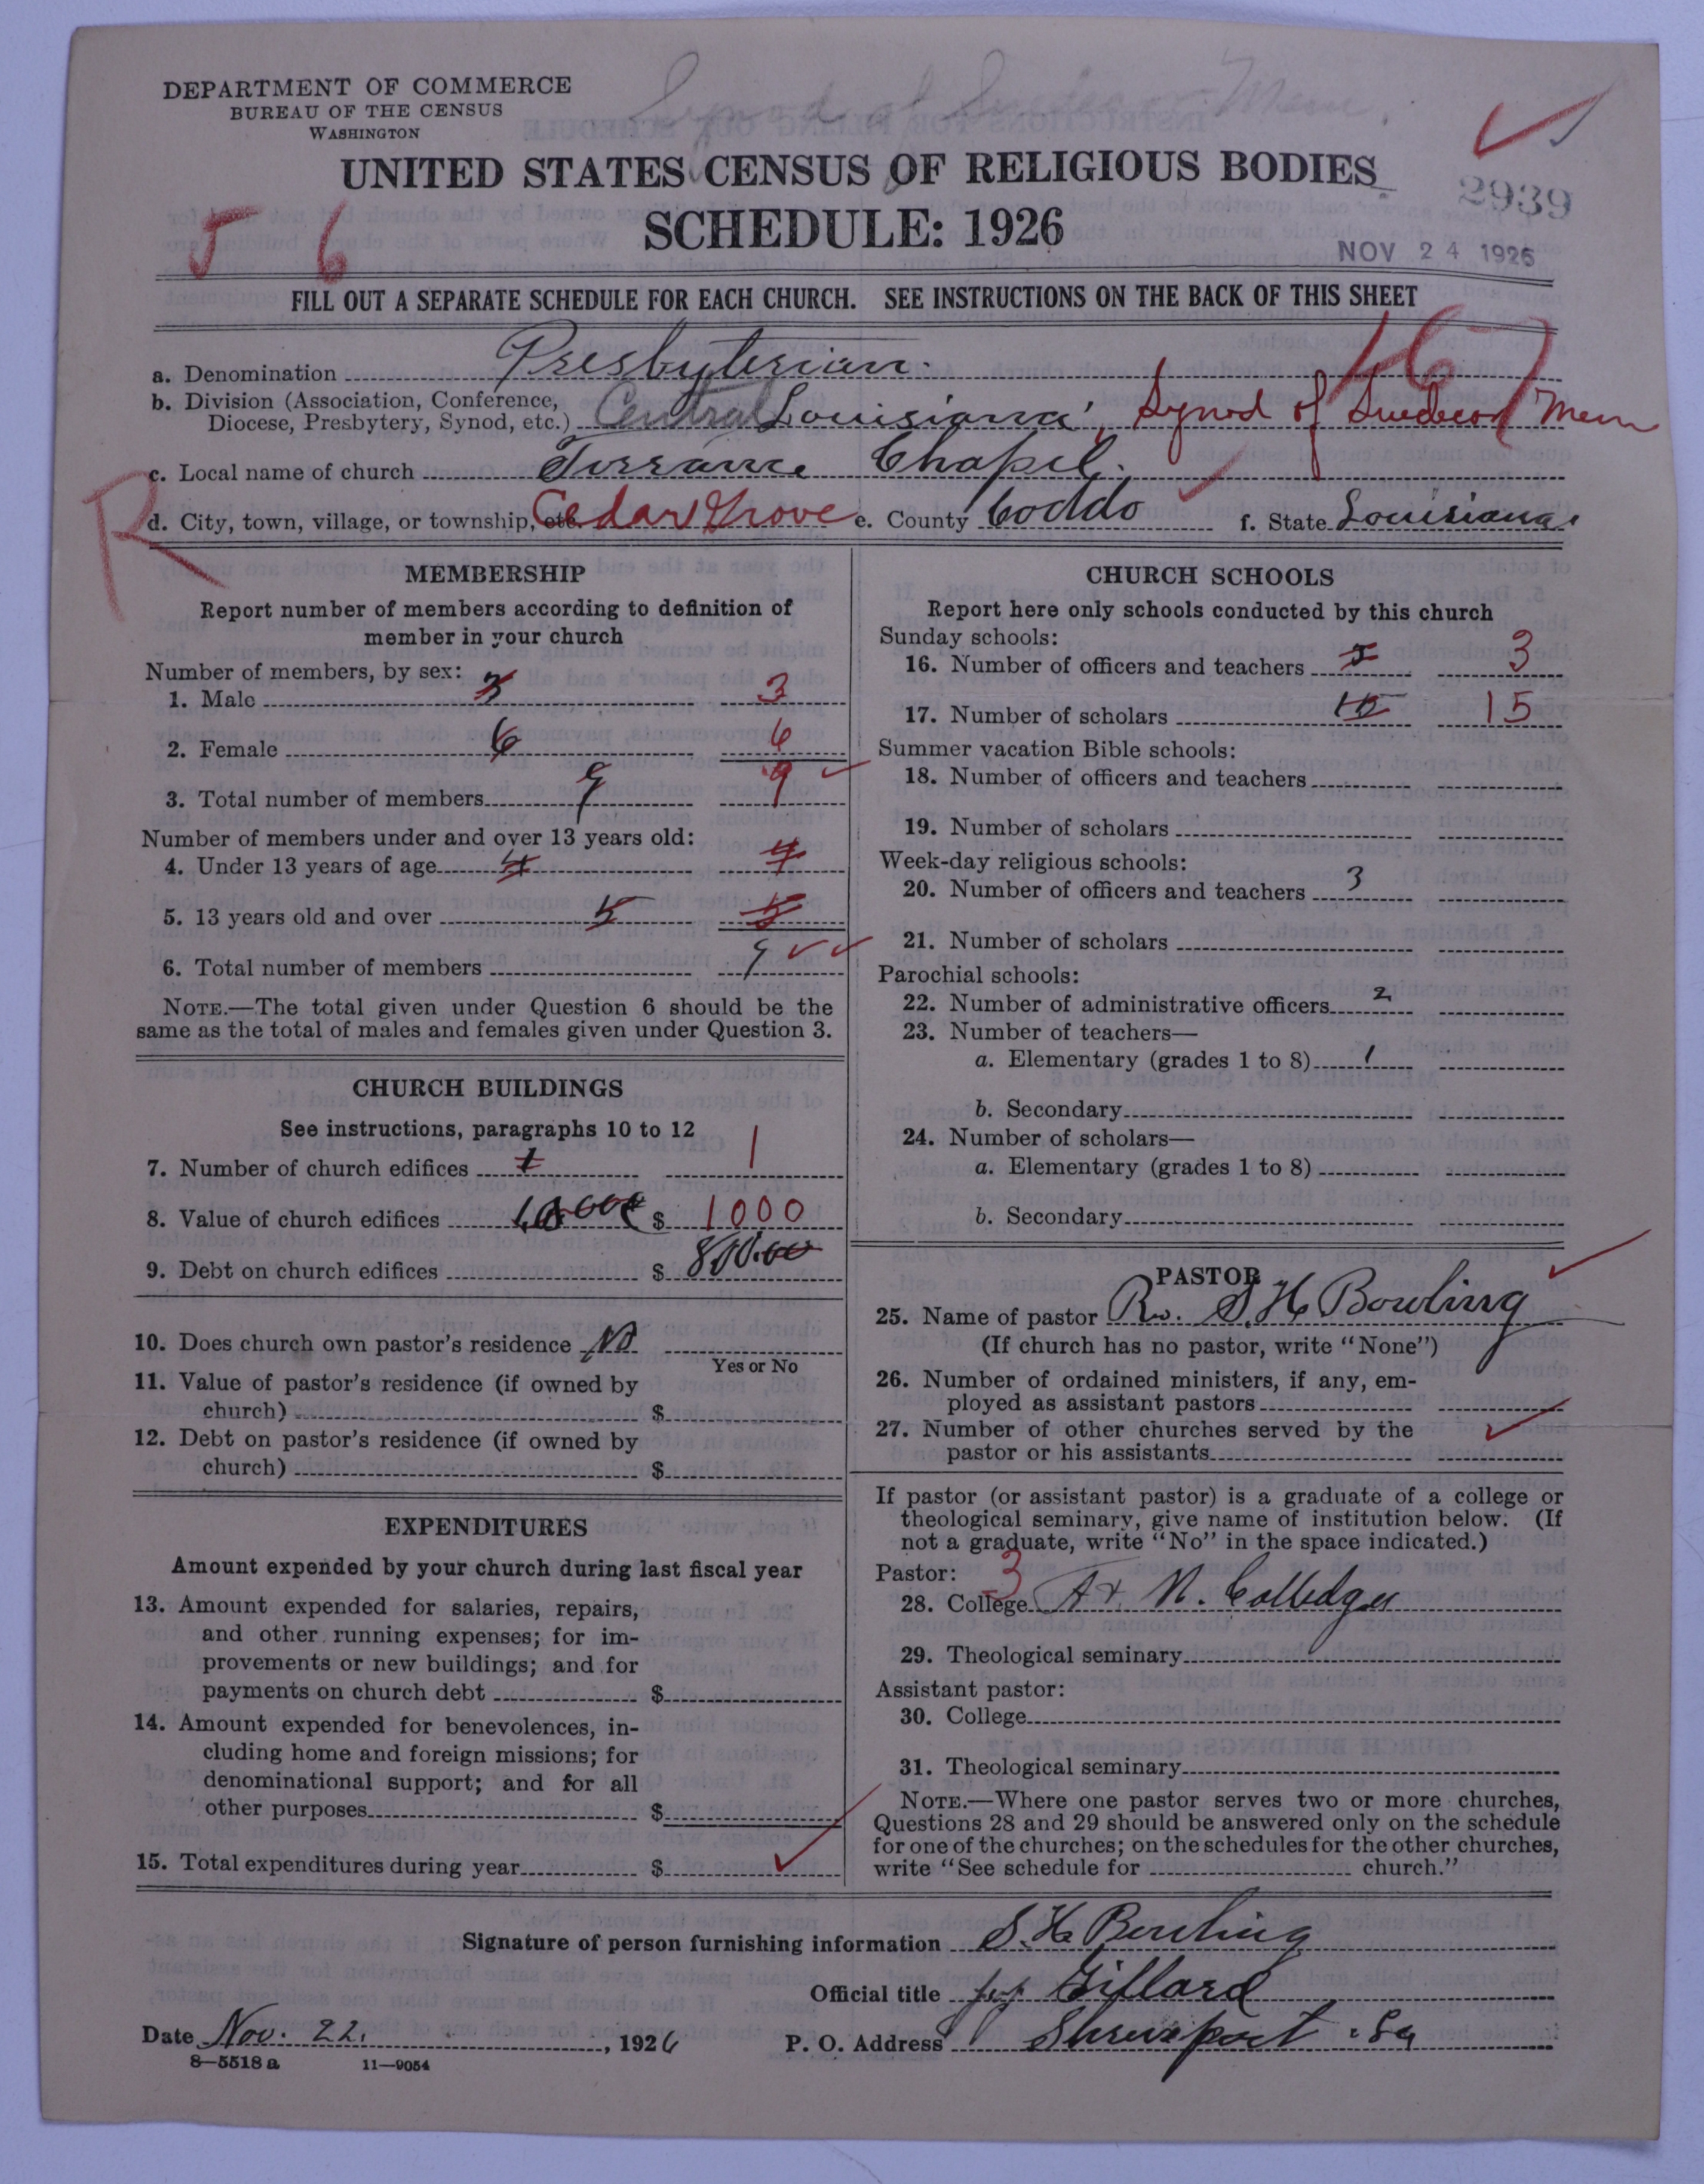 Synod of Snedecor Mem.
DEPARTMENT OF COMMERCE
BUREAU OF THE CENSUS
WASHINGTON
UNITED STATES CENSUS OF RELIGIOUS BODIES
SCHEDULE: 1926
2939
NOV 24 1926
5 6
FILL OUT A SEPARATE SCHEDULE FOR EACH CHURCH. SEE INSTRUCTIONS ON THE BACK OF THIS SHEET
a. Denomination Presbyterian.
b. Division (Association, Conference, Diocese, Presbytery, Synod, etc.) Central Louisiana, Synod of Snedecor Mem
c. Local name of church Torrance Chapel.
R
d. City, town, village, or township, etc. Cedar Grove e. County Coddo f. State Louisiana
MEMBERSHIP
Report number of members according to definition of
member in your church
Number of members, by sex:
1. Male 3 3
2. Female 6 6
3. Total number of members 9 9
Number of members under and over 13 years old:
4. Under 13 years of age 4 4
5. 13 years old and over 5 5
6. Total number of members 9
NOTE.—The total given under Question 6 should be the
same as the total of males and females given under Question 3.
CHURCH BUILDINGS
See instructions, paragraphs 10 to 12
7. Number of church edifices 1 1
8. Value of church edifices $ 1000
9. Debt on church edifices $ 800.00
10. Does church own pastor's residence No
Yes or No
11. Value of pastor's residence (if owned by
church) $
12. Debt on pastor's residence (if owned by
church) $
EXPENDITURES
Amount expended by your church during last fiscal year
13. Amount expended for salaries, repairs,
and other running expenses; for im-
provements or new buildings; and for
payments on church debt $
14. Amount expended for benevolences, in-
cluding home and foreign missions; for
denominational support; and for all
other purposes $
15. Total expenditures during year $
CHURCH SCHOOLS
Report here only schools conducted by this church
Sunday schools:
16. Number of officers and teachers 3
17. Number of scholars 15 15
Summer vacation Bible schools:
18. Number of officers and teachers
19. Number of scholars
Week-day religious schools:
20. Number of officers and teachers 3
21. Number of scholars
Parochial schools:
22. Number of administrative officers 2
23. Number of teachers—
a. Elementary (grades 1 to 8) 1
b. Secondary
24. Number of scholars—
a. Elementary (grades 1 to 8)
b. Secondary
PASTOR
25. Name of pastor Rv. S. H. Bowling
(If church has no pastor, write "None")
26. Number of ordained ministers, if any, em-
ployed as assistant pastors
27. Number of other churches served by the
pastor or his assistants
If pastor (or assistant pastor) is a graduate of a college or
theological seminary, give name of institution below. (If
not a graduate, write "No" in the space indicated.)
Pastor: 3
28. College A & N. Colledge
29. Theological seminary
Assistant pastor:
30. College
31. Theological seminary
NOTE.—Where one pastor serves two or more churches,
Questions 28 and 29 should be answered only on the schedule
for one of the churches; on the schedules for the other churches,
write "See schedule for church."
Signature of person furnishing information S. H. Bowling
Official title Gillard
Date Nov. 22. , 1926 P. O. Address Shreveport, La
8—5518 a 11—9054